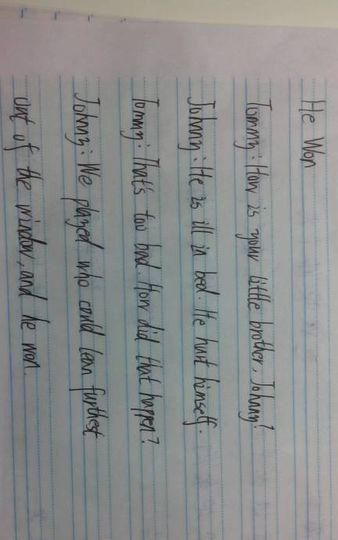 He Won
Tommy: How is your little brother, Johnny?
Johnny: He is ill in bed. He hurt himself.
Tommy: That's too bad. How did that happen?
Johnny: We played who could lean furthest
out of the window, and he won.